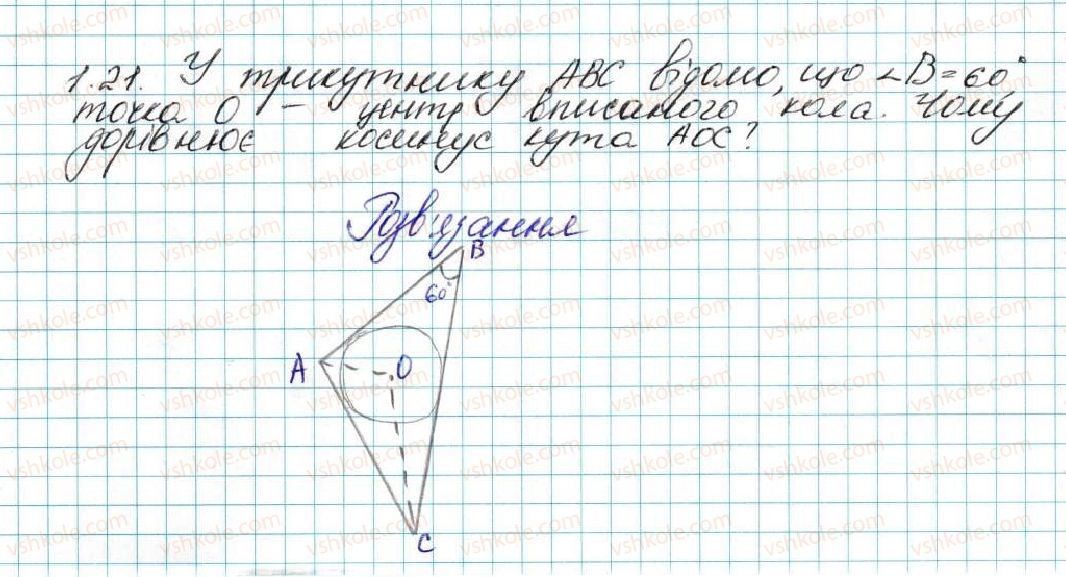 1.21. У трикутнику ABC відомо, що ∠B=60°
точка O – центр вписаного кола. Чому
дорівнює косинус кута AOC?
Розв'язання
B
60°
A
O
C